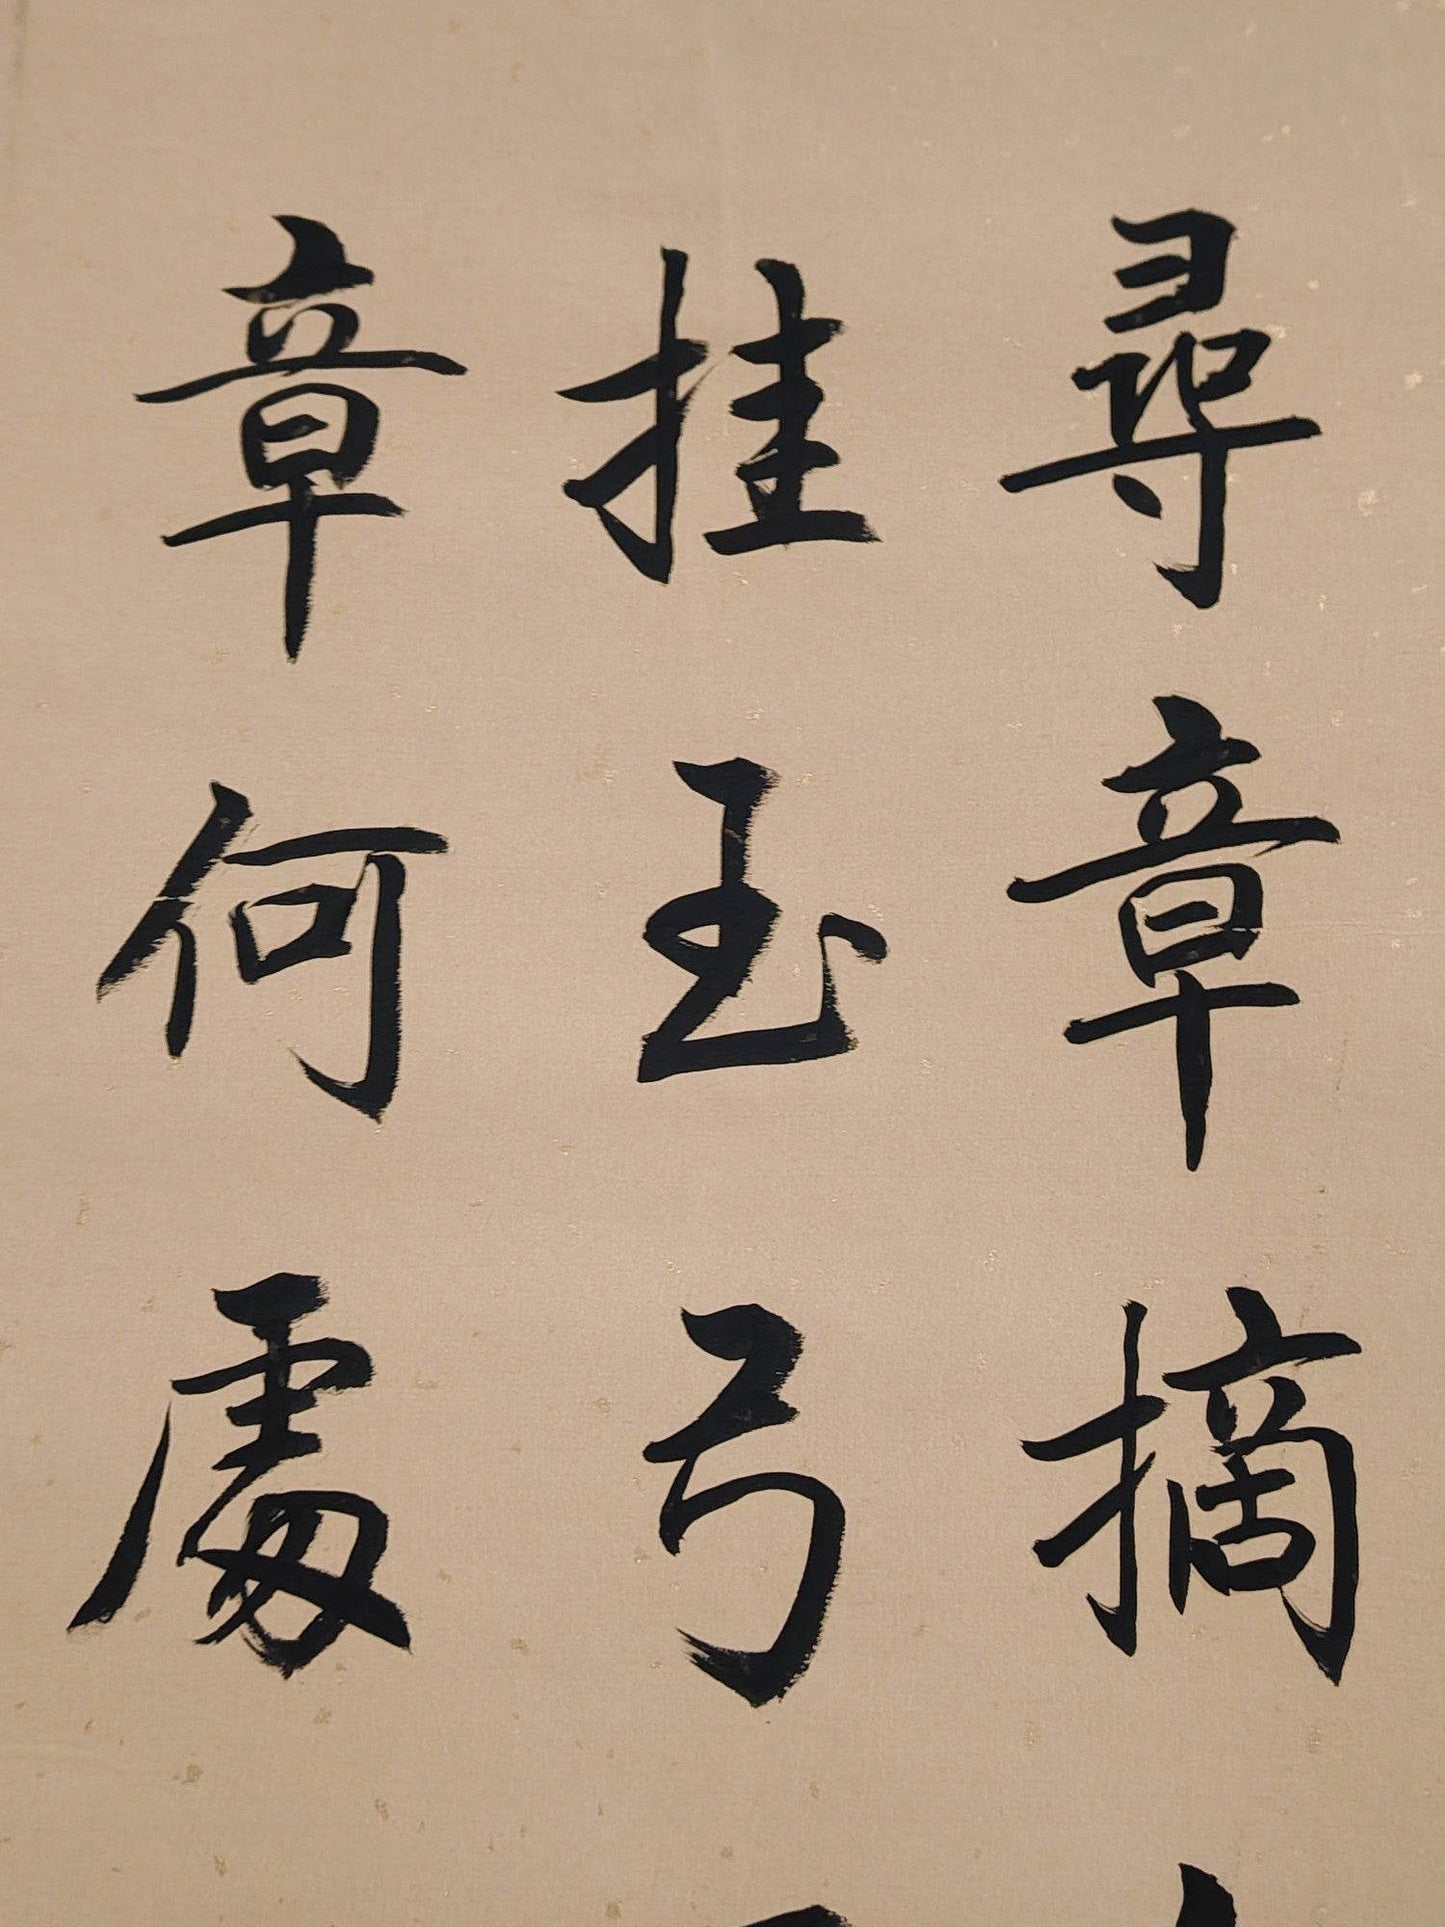 尋章摘
挂玉弓
章何處